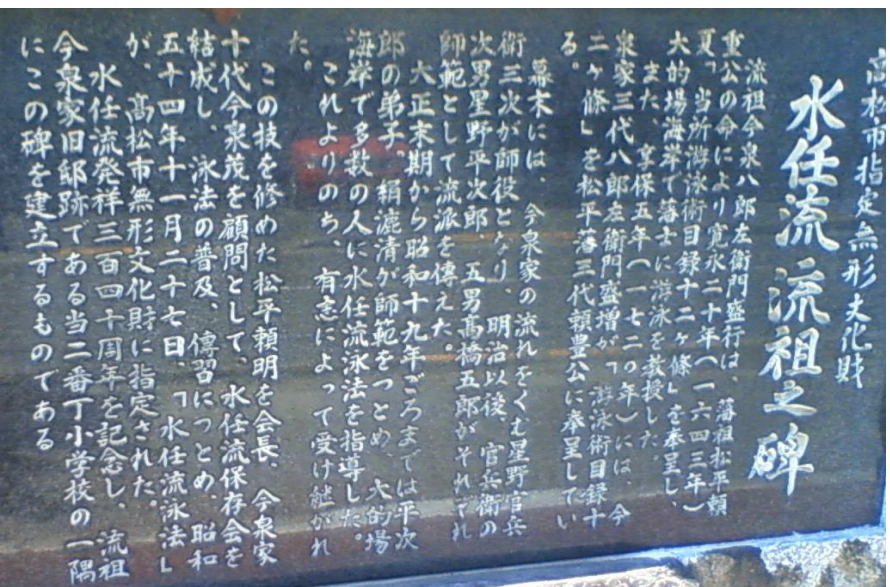 高松市指定無形文化財
水任流 流祖之碑
流祖今泉八郎左衛門盛行は、藩祖松平頼
重公の命により寛永二十年(一六四三年)
夏「当所游泳術目録十二ヶ條」を奉呈し、
大的場海岸で藩士に游泳を教授した。
また、享保五年(一七二〇年)には、今
泉家三代八郎左衛門盛増が「游泳術目録十
二ヶ條」を松平藩三代頼豊公に奉呈してい
る。
幕末には、今泉家の流れをくむ星野官兵
衛三次が師役となり、明治以後、官兵衛の
次男星野平次郎、五男髙橋五郎がそれぞれ
師範として流派を傳えた。
大正末期から昭和十九年ごろまでは平次
郎の弟子、絹漉清が師範をつとめ、大的場
海岸で多数の人に水任流泳法を指導した。
これよりのち、有志によって受け継がれ
た。
この技を修めた松平頼明を会長、今泉家
十代今泉茂を顧問として、水任流保存会を
結成し、泳法の普及、傳習につとめ、昭和
五十四年十一月二十七日、「水任流泳法」
が、髙松市無形文化財に指定された。
水任流発祥三百四十周年を記念し、流祖
今泉家旧邸跡である当二番丁小学校の一隅
にこの碑を建立するものである